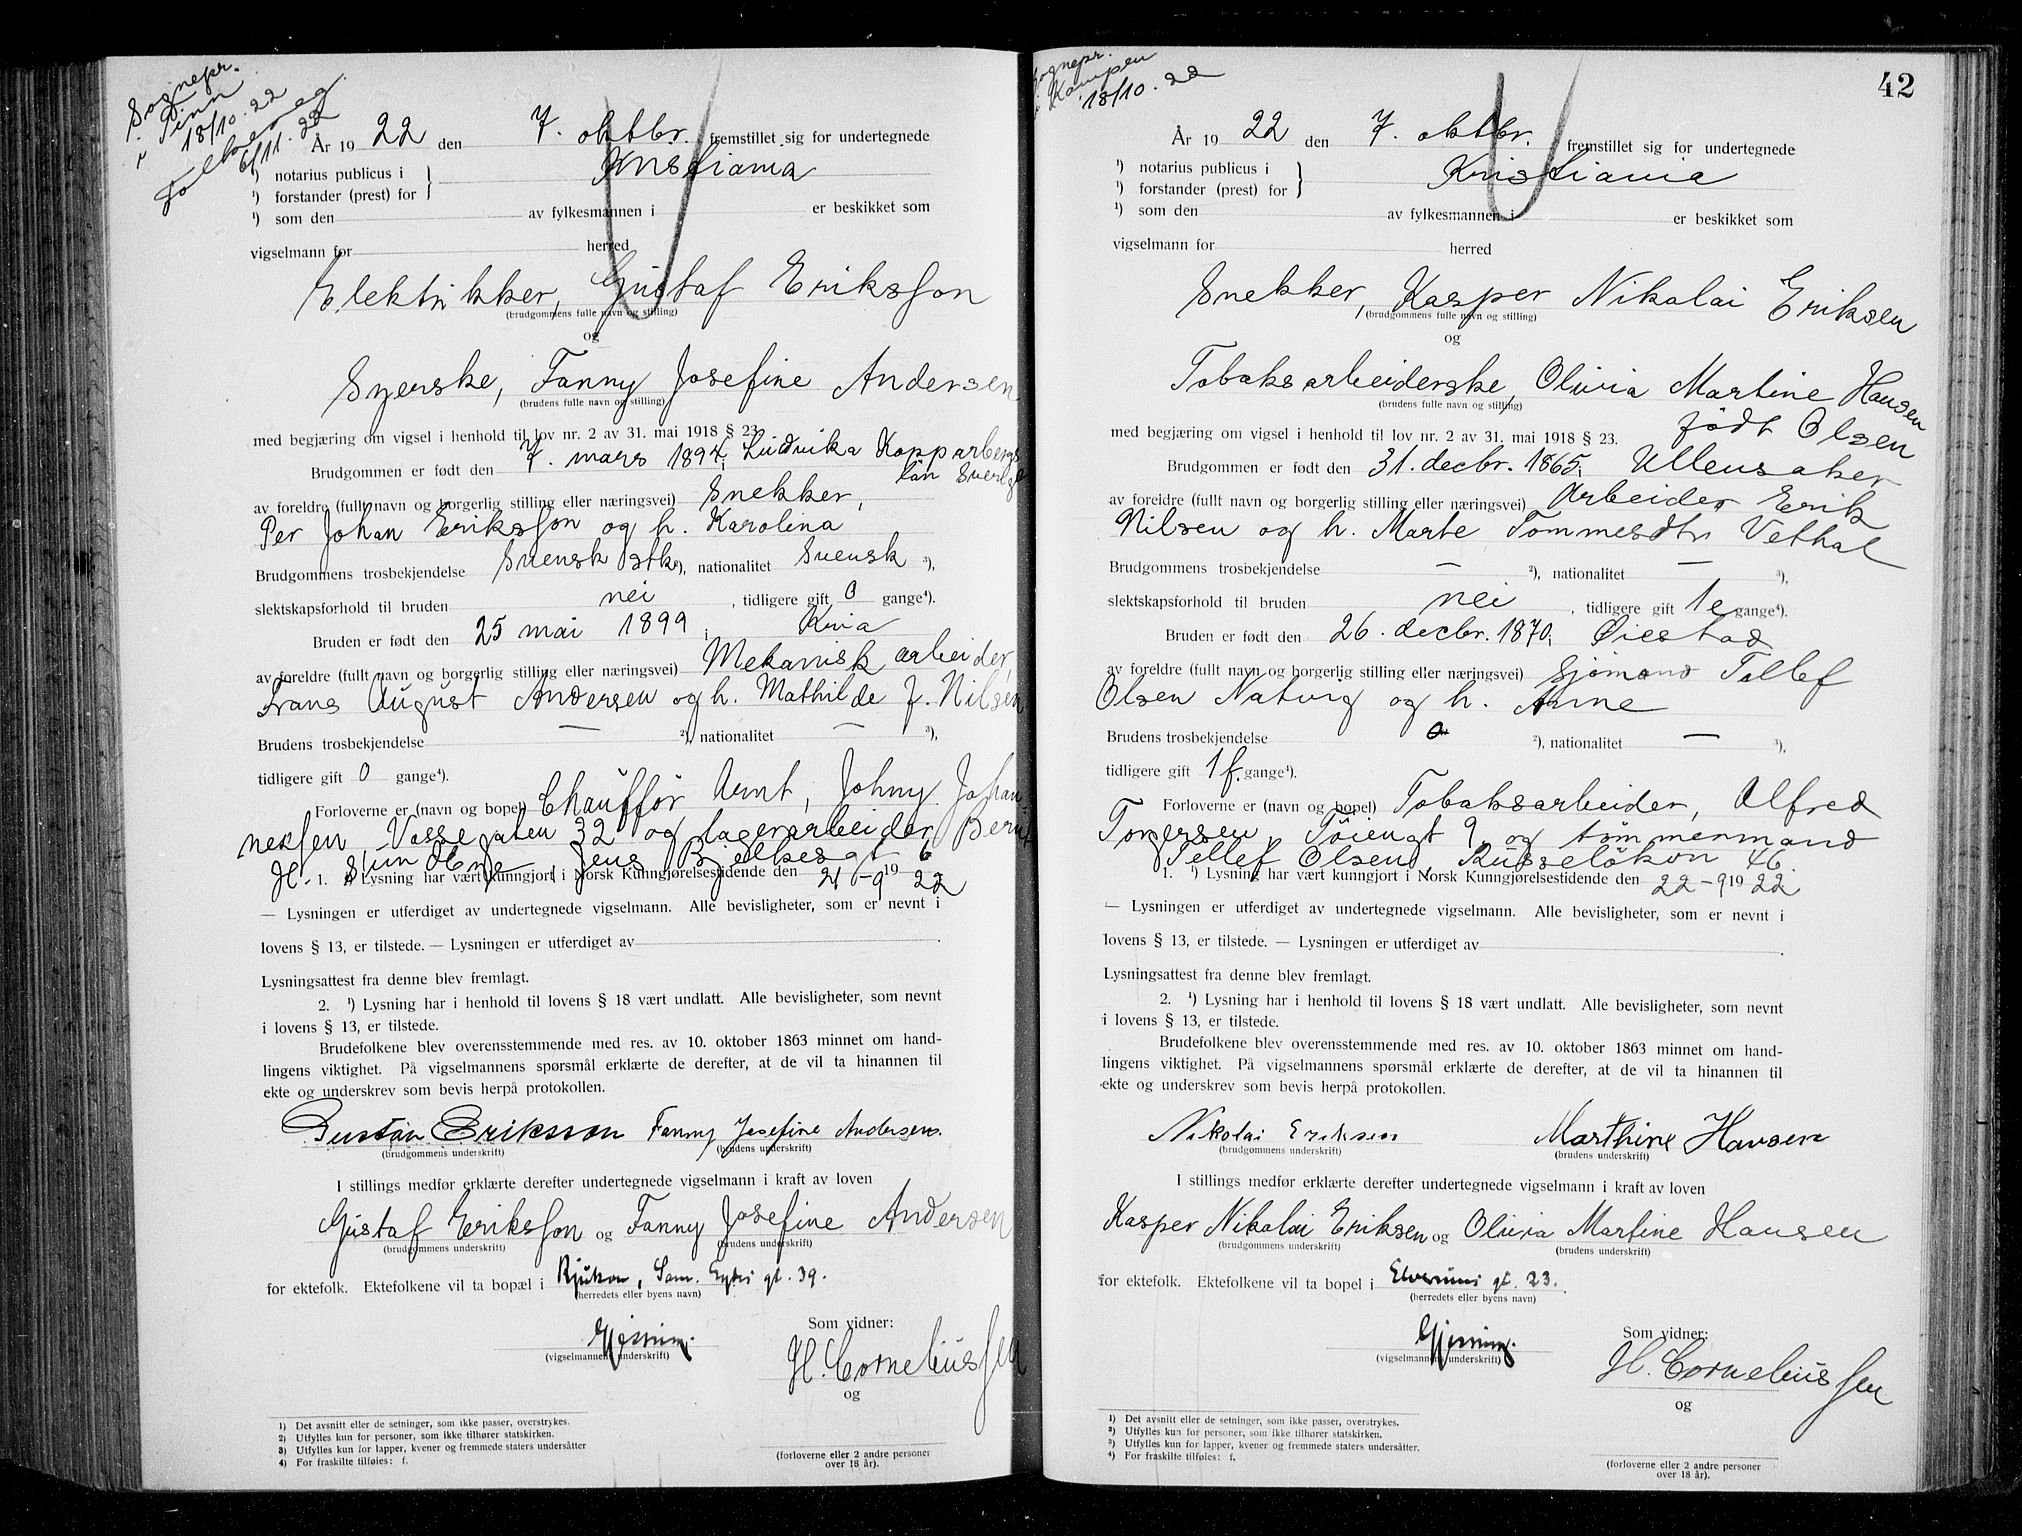 Sognepr.
i Tinn
18/10.22
Folkereg.
6/11.22
År 19 22 den 7. oktbr. fremstillet sig for undertegnede
¹) notarius publicus i
¹) forstander (prest) for } Kristiania
¹) som den av fylkesmannen i er beskikket som
vigselmann for herred
Elektrikker, Gustaf Eriksson
(brudgommens fulle navn og stilling)
og
Syerske, Fanny Josefine Andersen
(brudens fulle navn og stilling)
med begjæring om vigsel i henhold til lov nr. 2 av 31. mai 1918 § 23.
Brudgommen er født den 7. mars 1894; Ludvika Kopparbergs
län Sverige
av foreldre (fullt navn og borgerlig stilling eller næringsvei) Snekker,
Per Johan Eriksson og h. Karolina
Brudgommens trosbekjendelse Svensk stk ²), nationalitet Svensk ³),
slektskapsforhold til bruden nei, tidligere gift 0 gange⁴).
Bruden er født den 25 mai 1899; Kria
av foreldre (fullt navn og borgerlig stilling eller næringsvei) Mekanisk arbeider,
Frans August Andersen og h. Mathilde f. Nilsen
Brudens trosbekjendelse — ²), nationalitet — ³),
tidligere gift 0 gange⁴).
Forloverne er (navn og bopel) Chauffør Arnt, Johny Johan-
nessen, Vossegaten 32 og lagerarbeider Bernt
H. Jens Bjelkesgt 6
1. ¹) Lysning har vært kunngjort i Norsk Kunngjørelsestidende den 21-9 19 22
— Lysningen er utferdiget av undertegnede vigselmann. Alle bevisligheter, som er nevnt i
lovens § 13, er tilstede. — Lysningen er utferdiget av
Lysningsattest fra denne blev fremlagt.
2. ¹) Lysning har i henhold til lovens § 18 vært undlatt. Alle bevisligheter, som nevnt
i lovens § 13, er tilstede.
Brudefolkene blev overensstemmende med res. av 10. oktober 1863 minnet om hand-
lingens viktighet. På vigselmannens spørsmål erklærte de derefter, at de vil ta hinannen til
ekte og underskrev som bevis herpå protokollen.
Gustav Eriksson Fanny Josefine Andersen.
(brudgommens underskrift) (brudens underskrift)
I stillings medfør erklærte derefter undertegnede vigselmann i kraft av loven
Gustaf Eriksson og Fanny Josefine Andersen
(brudgommens underskrift) (brudens underskrift)
for ektefolk. Ektefolkene vil ta bopæl i Rjukan, Sam. Eydes gt. 39.
(herredets eller byens navn)
Gjessing.
(vigselmannens underskrift)
Som vidner:
H. Corneliussen
og
(forloverne eller 2 andre personer
over 18 år).
1) Det avsnitt eller de setninger, som ikke passer, overstrykes.
2) Utfylles kun for personer, som ikke tilhører statskirken.
3) Utfylles kun for lapper, kvener og fremmede staters undersåtter
4) For fraskilte tilføies: f.
Sognepr.
i Kampen
18/10.22
42
År 19 22 den 7. oktbr. fremstillet sig for undertegnede
¹) notarius publicus i
¹) forstander (prest) for } Kristiania
¹) som den av fylkesmannen i er beskikket som
vigselmann for herred
Snekker, Kasper Nikolai Eriksen
(brudgommens fulle navn og stilling)
og
Tobaksarbeiderske, Olivia Martine Hansen
(brudens fulle navn og stilling)
født Olsen
med begjæring om vigsel i henhold til lov nr. 2 av 31. mai 1918 § 23.
Brudgommen er født den 31. decbr. 1865; Ullensaker
av foreldre (fullt navn og borgerlig stilling eller næringsvei) Arbeider Erik
Nilsen og h. Marte Tommesdtr Vethal
Brudgommens trosbekjendelse — ²), nationalitet — ³),
slektskapsforhold til bruden nei, tidligere gift 1 e gange⁴).
Bruden er født den 26. decbr. 1870; Øiestad
av foreldre (fullt navn og borgerlig stilling eller næringsvei) Sjømand Tollef
Olsen Natvig og h. Anne
Brudens trosbekjendelse 0 ²), nationalitet — ³),
tidligere gift 1 f. gange⁴).
Forloverne er (navn og bopel) Tobaksarbeider, Alfred
Torgersen, Tøiengt 9, og tømmermand
Tellef Olsen, Russeløkvn 46
1. ¹) Lysning har vært kunngjort i Norsk Kunngjørelsestidende den 22-9 19 22
— Lysningen er utferdiget av undertegnede vigselmann. Alle bevisligheter, som er nevnt i
lovens § 13, er tilstede. — Lysningen er utferdiget av
Lysningsattest fra denne blev fremlagt.
2. ¹) Lysning har i henhold til lovens § 18 vært undlatt. Alle bevisligheter, som nevnt
i lovens § 13, er tilstede.
Brudefolkene blev overensstemmende med res. av 10. oktober 1863 minnet om hand-
lingens viktighet. På vigselmannens spørsmål erklærte de derefter, at de vil ta hinannen til
ekte og underskrev som bevis herpå protokollen.
Nikolai Eriksen Marthine Hansen
(brudgommens underskrift) (brudens underskrift)
I stillings medfør erklærte derefter undertegnede vigselmann i kraft av loven
Kasper Nikolai Eriksen og Olivia Martine Hansen
(brudgommens underskrift) (brudens underskrift)
for ektefolk. Ektefolkene vil ta bopel i Elverums gt. 23.
(herredets eller byens navn)
Gjessing.
(vigselmannens underskrift)
Som vidner:
H. Corneliussen
og
(forloverne eller 2 andre personer
over 18 år).
1) Det avsnitt eller de setninger, som ikke passer, overstrykes.
2) Utfylles kun for personer, som ikke tilhører statskirken.
3) Utfylles kun for lapper, kvener og fremmede staters undersåtter.
4) For fraskilte tilføies: f.